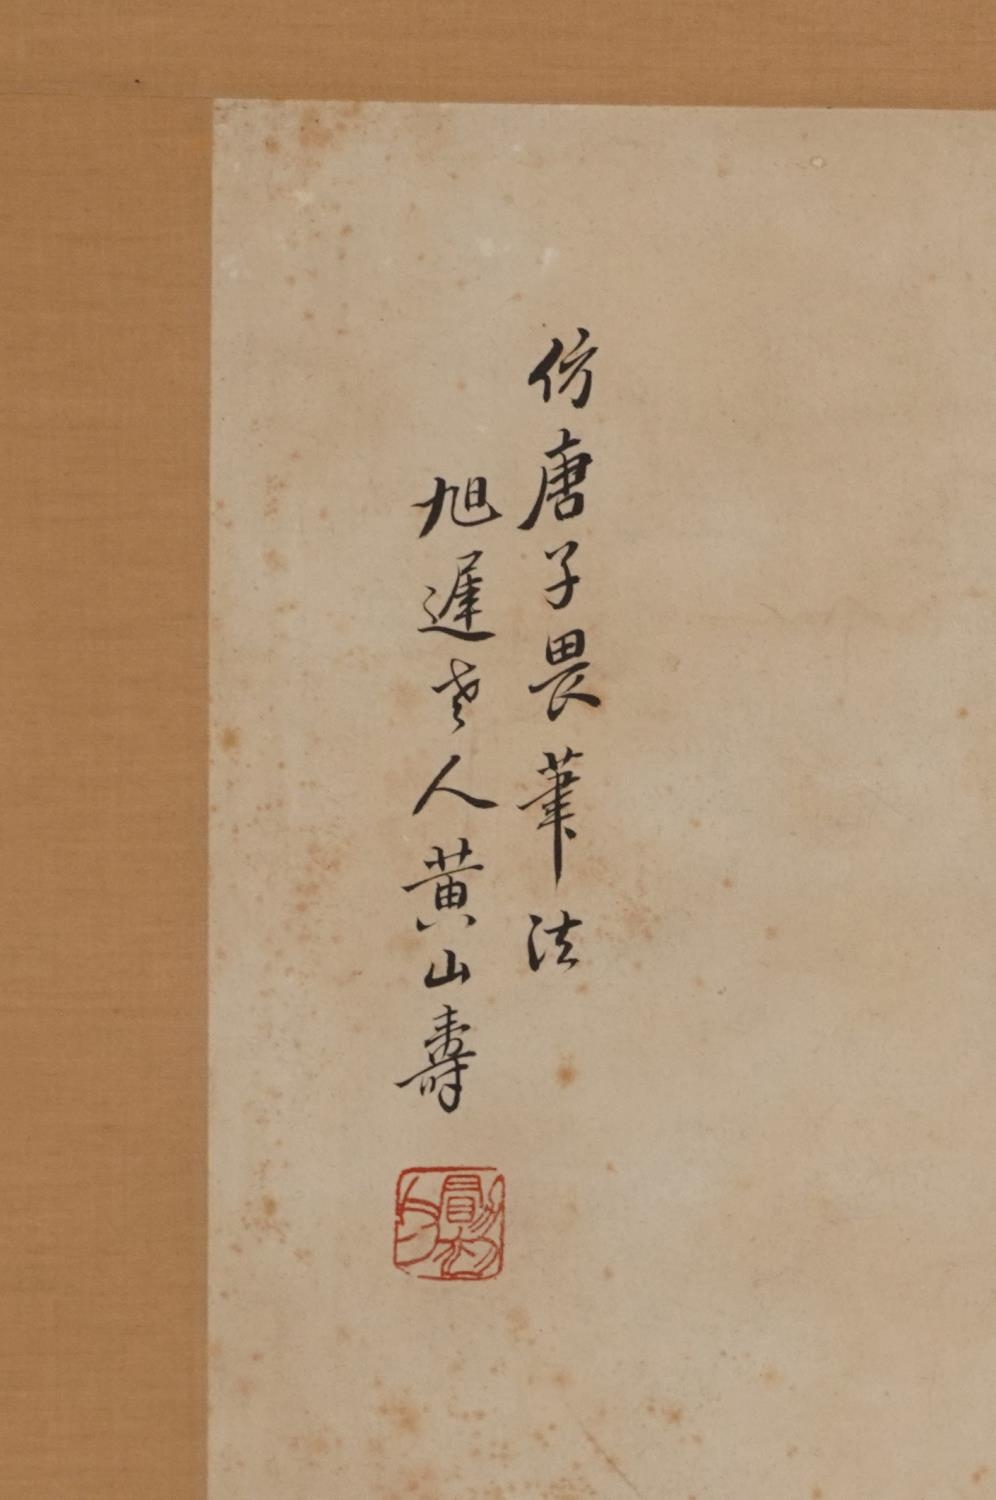 仿唐子畏筆法
旭遲老人黃山壽